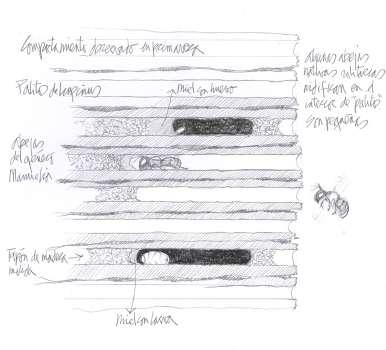 Comportamiento observado en primavera
Palitos de
miel con huevo
algunas abejas
nativas solitarias
nidifican en el
interior de "palitos"
son pequeñas
abejas
del género
Manuelia
Tapón de madera
molida
miel con larva